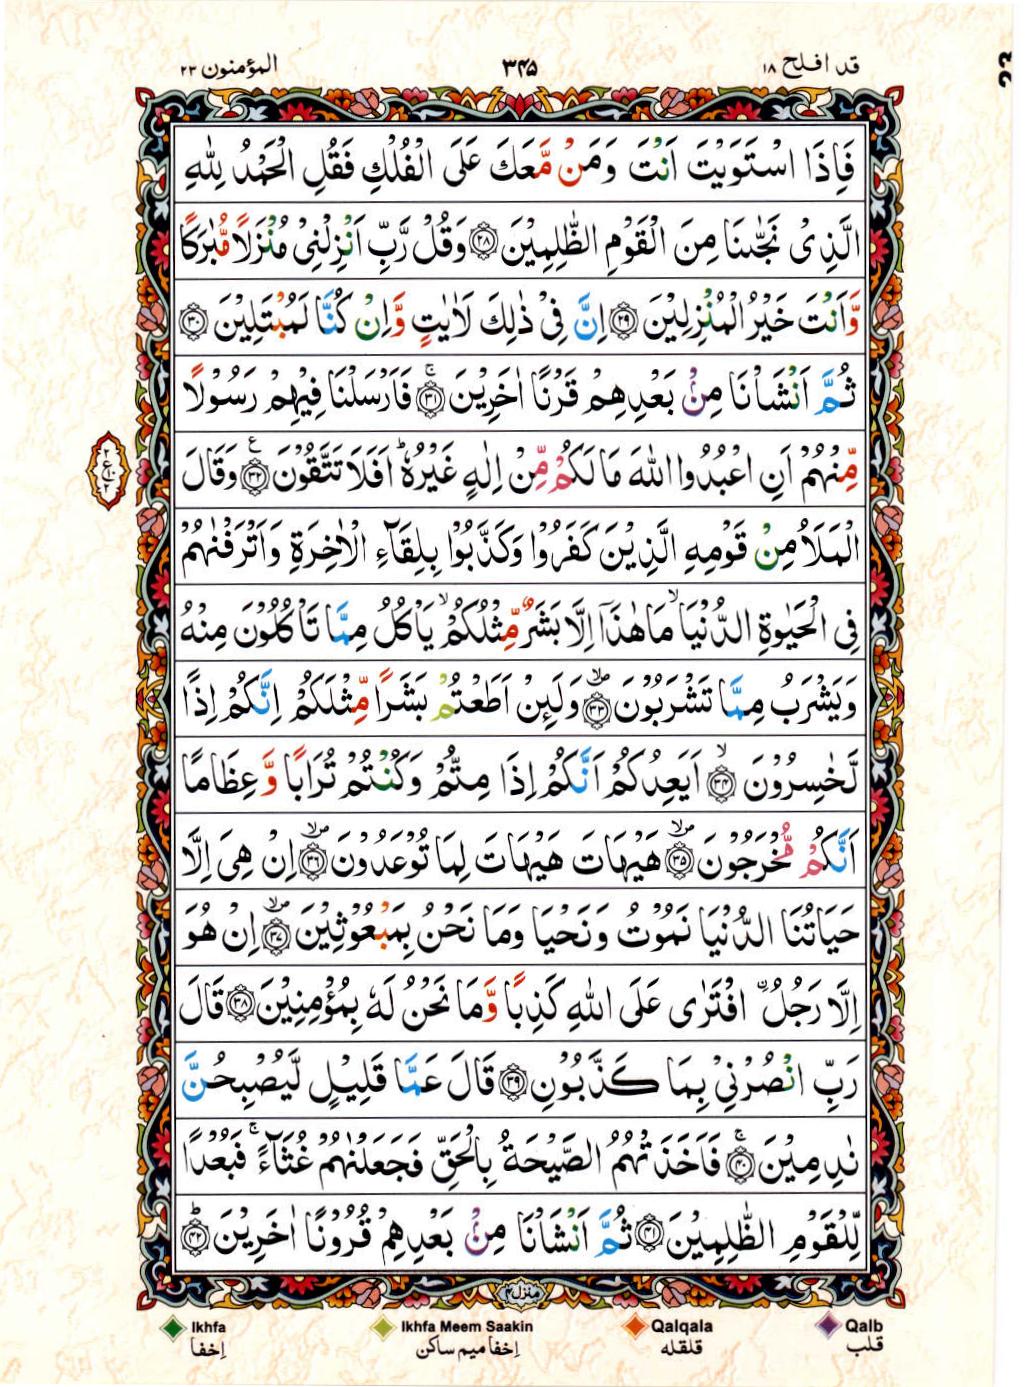 المؤمنون ٢٣
٣٤٥
قد افلح ١٨
فَاِذَا اسْتَوَيْتَ اَنْتَ وَمَنْ مَّعَكَ عَلَى الْفُلْكِ فَقُلِ الْحَمْدُ لِلّٰهِ
الَّذِىْ نَجّٰىنَا مِنَ الْقَوْمِ الظّٰلِمِيْنَ ﴿٢٨﴾ وَقُلْ رَّبِّ اَنْزِلْنِىْ مُنْزَلًا مُّبٰرَكًا
وَّاَنْتَ خَيْرُ الْمُنْزِلِيْنَ ﴿٢٩﴾ اِنَّ فِىْ ذٰلِكَ لَاٰيٰتٍ وَّاِنْ كُنَّا لَمُبْتَلِيْنَ ﴿٣٠﴾
ثُمَّ اَنْشَاْنَا مِنْۢ بَعْدِهِمْ قَرْنًا اٰخَرِيْنَ ۚ﴿٣١﴾ فَاَرْسَلْنَا فِيْهِمْ رَسُوْلًا
مِّنْهُمْ اَنِ اعْبُدُوا اللّٰهَ مَا لَكُمْ مِّنْ اِلٰهٍ غَيْرُهٗ ؕ اَفَلَا تَتَّقُوْنَ ﴿٣٢﴾ وَقَالَ
الْمَلَاُ مِنْ قَوْمِهِ الَّذِيْنَ كَفَرُوْا وَكَذَّبُوْا بِلِقَآءِ الْاٰخِرَةِ وَاَتْرَفْنٰهُمْ
فِى الْحَيٰوةِ الدُّنْيَا ۙ مَا هٰذَآ اِلَّا بَشَرٌ مِّثْلُكُمْ ۙ يَاْكُلُ مِمَّا تَاْكُلُوْنَ مِنْهُ
وَيَشْرَبُ مِمَّا تَشْرَبُوْنَ ۙ﴿٣٣﴾ وَلَئِنْ اَطَعْتُمْ بَشَرًا مِّثْلَكُمْ اِنَّكُمْ اِذًا
لَّخٰسِرُوْنَ ۙ﴿٣٤﴾ اَيَعِدُكُمْ اَنَّكُمْ اِذَا مِتُّمْ وَكُنْتُمْ تُرَابًا وَّعِظَامًا
اَنَّكُمْ مُّخْرَجُوْنَ ۙ﴿٣٥﴾ هَيْهَاتَ هَيْهَاتَ لِمَا تُوْعَدُوْنَ ۙ﴿٣٦﴾ اِنْ هِىَ اِلَّا
حَيَاتُنَا الدُّنْيَا نَمُوْتُ وَنَحْيَا وَمَا نَحْنُ بِمَبْعُوْثِيْنَ ۙ﴿٣٧﴾ اِنْ هُوَ
اِلَّا رَجُلُ ۨ افْتَرٰى عَلَى اللّٰهِ كَذِبًا وَّمَا نَحْنُ لَهٗ بِمُؤْمِنِيْنَ ﴿٣٨﴾ قَالَ
رَبِّ انْصُرْنِىْ بِمَا كَذَّبُوْنِ ﴿٣٩﴾ قَالَ عَمَّا قَلِيْلٍ لَّيُصْبِحُنَّ
نٰدِمِيْنَ ۚ﴿٤٠﴾ فَاَخَذَتْهُمُ الصَّيْحَةُ بِالْحَقِّ فَجَعَلْنٰهُمْ غُثَآءً ۚ فَبُعْدًا
لِّلْقَوْمِ الظّٰلِمِيْنَ ﴿٤١﴾ ثُمَّ اَنْشَاْنَا مِنْۢ بَعْدِهِمْ قُرُوْنًا اٰخَرِيْنَ ؕ﴿٤٢﴾
منزل٤
Ikhfa
إخفا
Ikhfa Meem Saakin
إخفا ميم ساكن
Qalqala
قلقله
Qalb
قلب